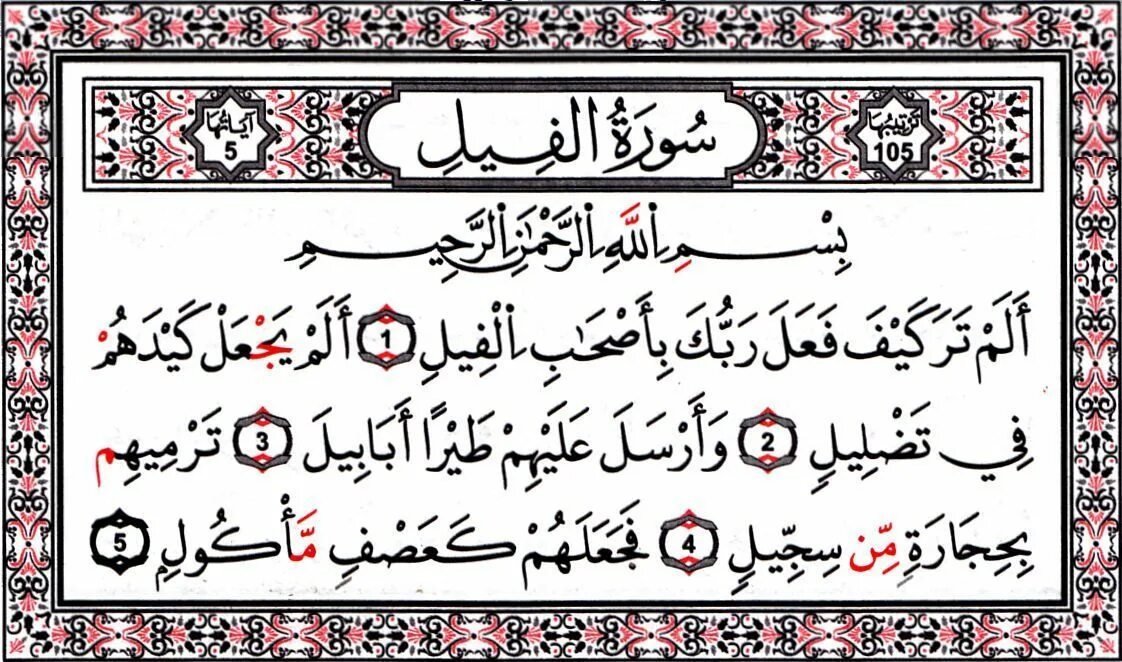 ترتيبها 105 سُورَةُ الفِيلِ آياتها 5
بِسْمِ اِ۬للَّهِ اِ۬لرَّحْمَٰنِ اِ۬لرَّحِيمِ
أَلَمْ تَرَ كَيْفَ فَعَلَ رَبُّكَ بِأَصْحَٰبِ اِ۬لْفِيلِ 1 أَلَمْ يَجْعَلْ كَيْدَهُمْ
فِي تَضْلِيلٍ 2 وَأَرْسَلَ عَلَيْهِمْ طَيْرًا أَبَابِيلَ 3 تَرْمِيهِم
بِحِجَارَةٍ مِّن سِجِّيلٍ 4 فَجَعَلَهُمْ كَعَصْفٍ مَّأْكُولٍ 5